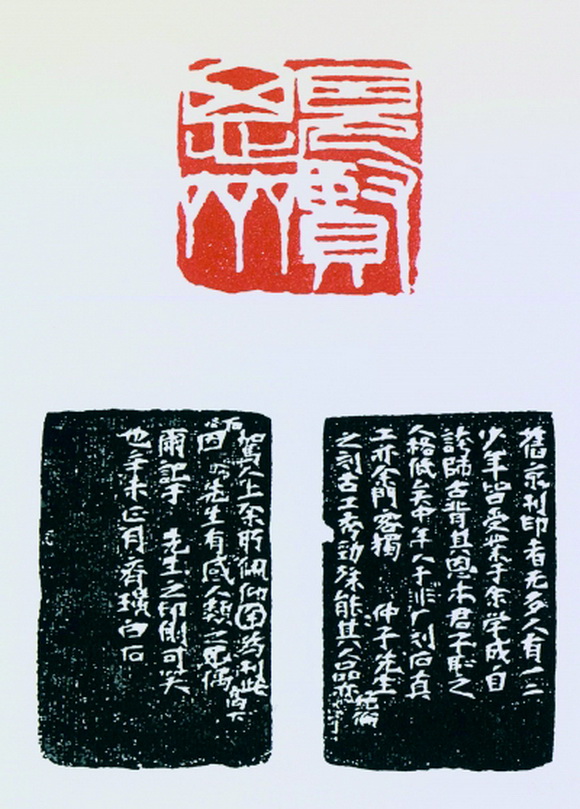 見賢
思齊
舊京刻印者无多人有一二
少年皆受業于余学成自
誇師古背其恩本君子耻之
人格低矣中年人于非厂刻石真
工亦余門客獨 仲子先生
之刻古工秀勁殊能絕倫其人品亦
駕人上余所佩仰因為刻此石
先生有感人類之高下偶
爾記于 先生之印側可笑
也辛未正月齊璜白石